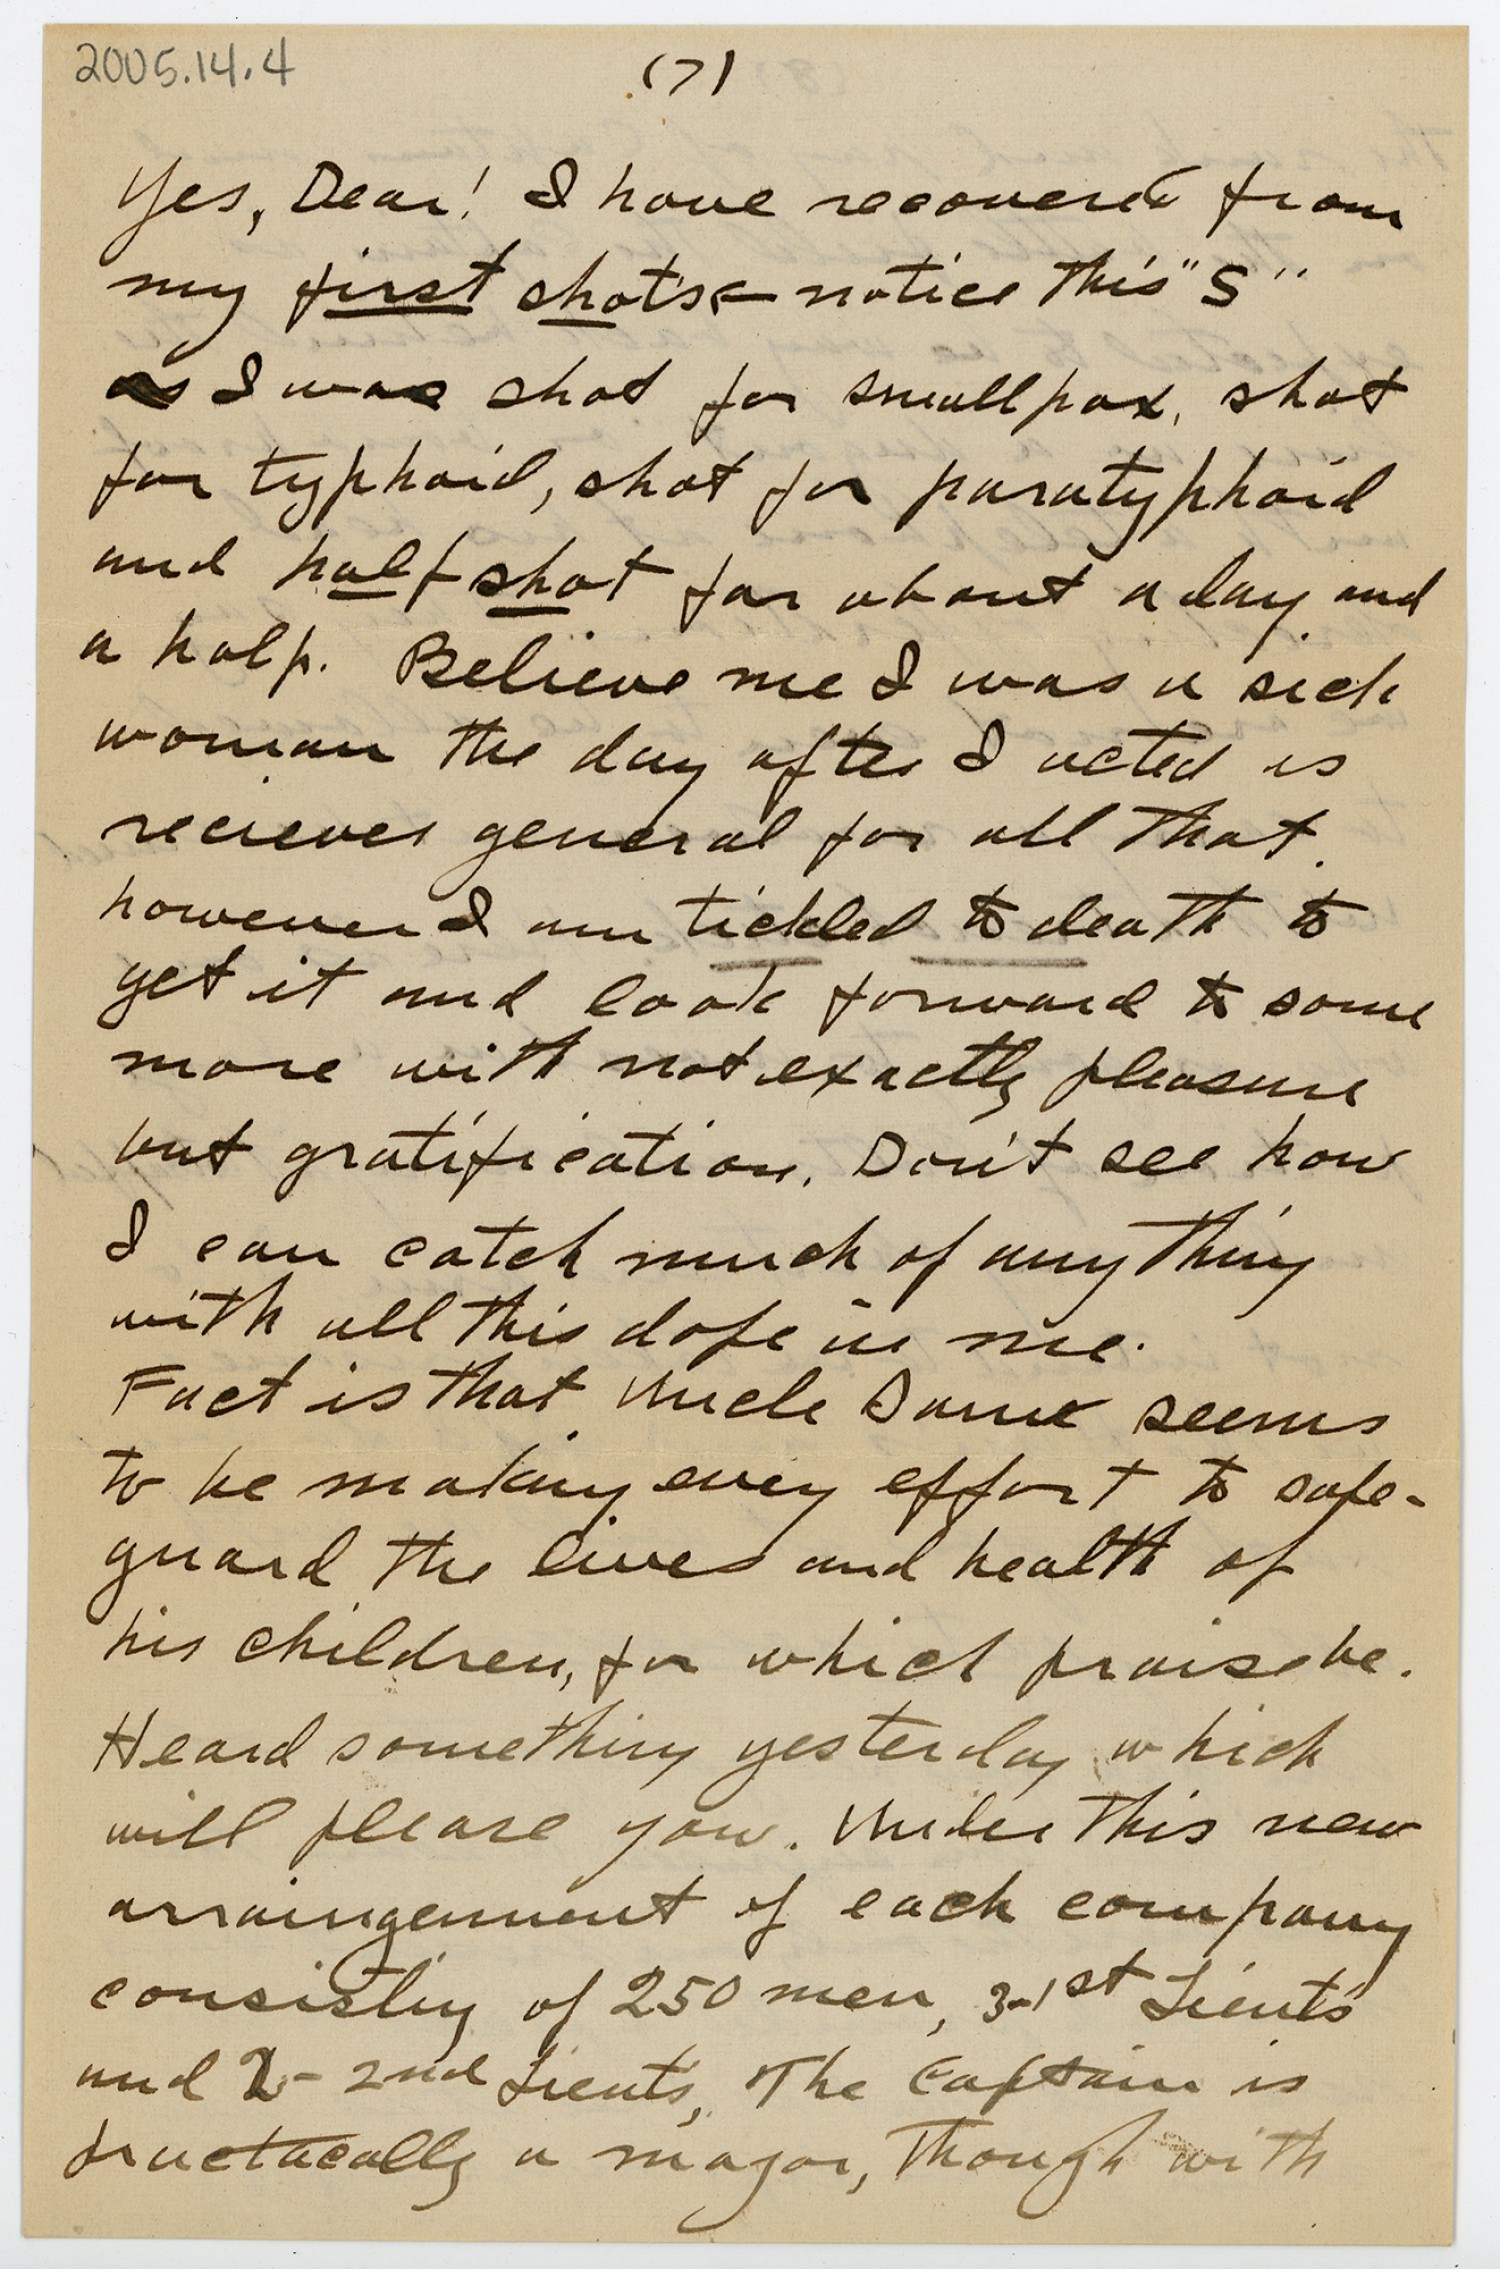 2005.14.4
(7)
Yes, Dear! I have recovered from
my first shots ← notice this "S"
as I was shot for smallpox, shot
for typhoid, shot for paratyphoid
and half shot for about a day and
a half. Believe me I was a sick
woman the day after I acted is
reciever general for all that.
however I am tickled to death to
get it and look forward to some
more with not exactly pleasure
but gratification. Don't see how
I can catch much of anything
with all this dope in me.
Fact is that Uncle Sam seems
to be making every effort to safe-
guard the lives and health of
his children, for which praise be.
Heard something yesterday which
will please you. Under this new
arraingement of each company
consisting of 250 men, 3-1st Lieuts
and 2- 2nd Lieuts, The Captain is
practacally a major, though with